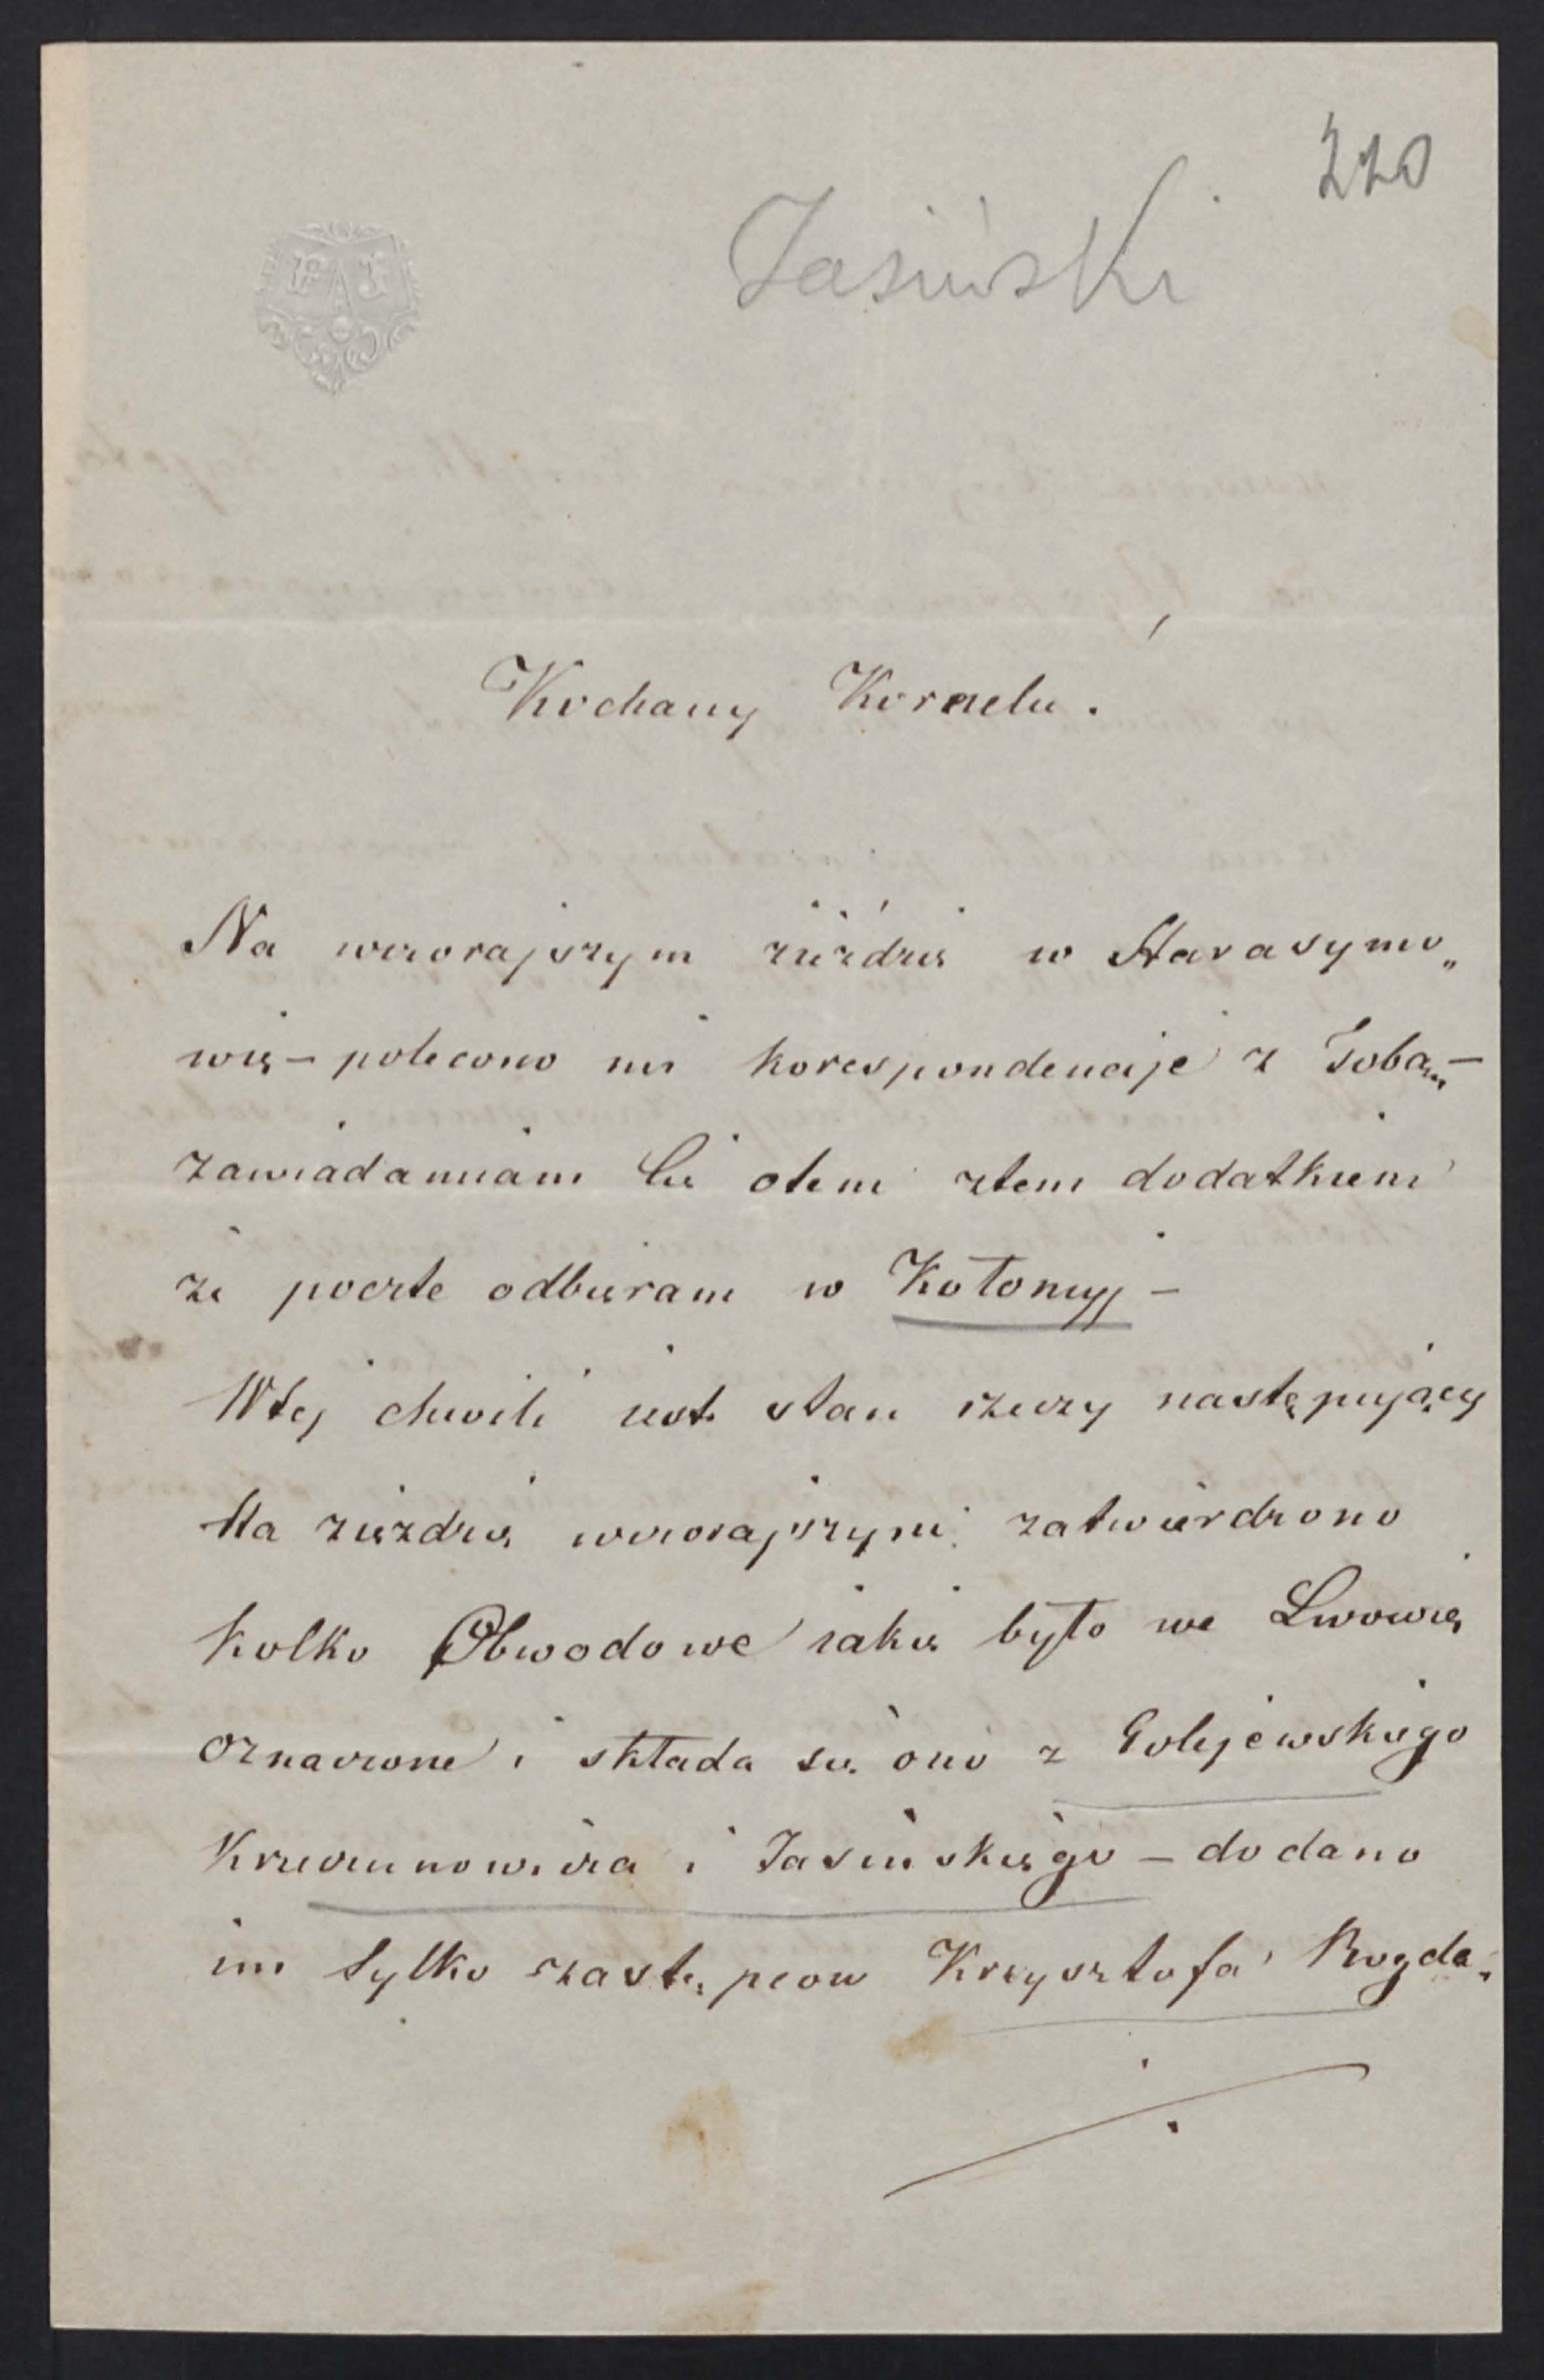 220
Jasiński
Kochany Kornelu.
Na wczorajszym zieździe w Harasymo„
wie – polecono mi korespondencije z Tobą –
zawiadamiam Cie otem ztem dodatkiem
że poczte odbieram w Kołomyj –
Wtej chwili iest stan rzeczy następujący
Na zieździe wczorajszym zatwierdzono
kolko Obwodowe iakie było we Lwowie
oznaczone i składa sie ono z Golejewskiego
Krzeczunowicza i Jasińskiego – dodano
im tylko zastępcow Krzysztofa Bogda„